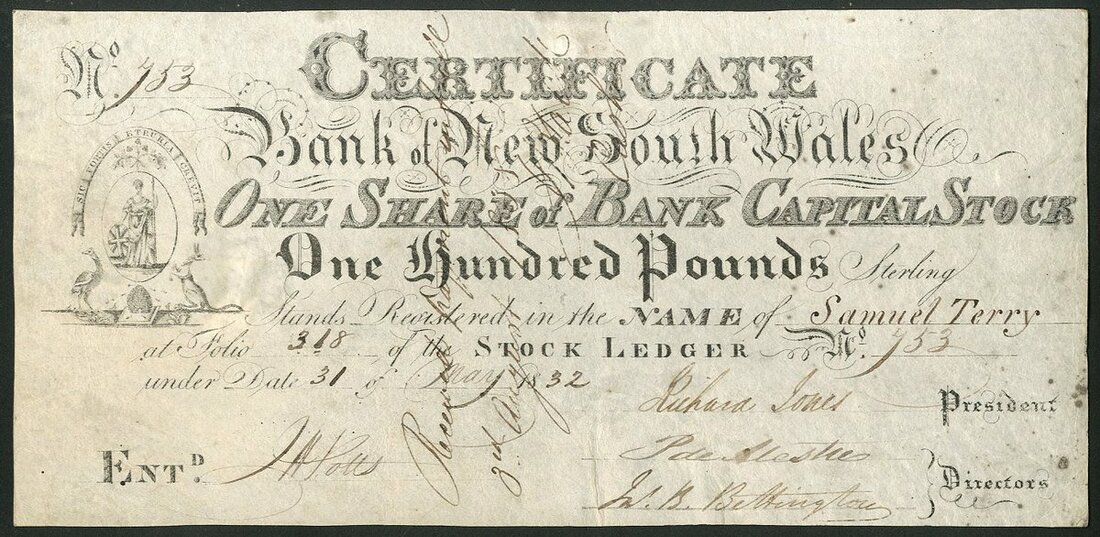 No. 753
CERTIFICATE
Bank of New South Wales
SIC FORTIS ETRURIA CREVIT
ONE SHARE of BANK CAPITAL STOCK
One Hundred Pounds Sterling
Stands Registered in the NAME of Samuel Terry
at Folio 318 of the STOCK LEDGER No. 753
under Date 31 of May 1832
Richard Jones President
ENTD. J H Potts
Jas. B. Bettington Directors
3rd August